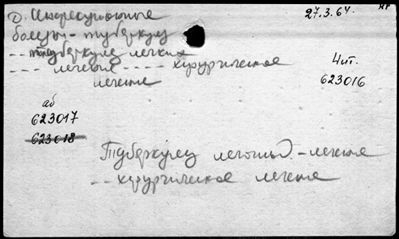 д. Инфекционные 27.3.64.
болезни - туберкулез
- - - туберкулез легких
- - - легочные - - - - хирургическое
лечение
Чит.
623016
аб
623017
623018
Туберкулез легочный - лечение
- - хирургическое лечение